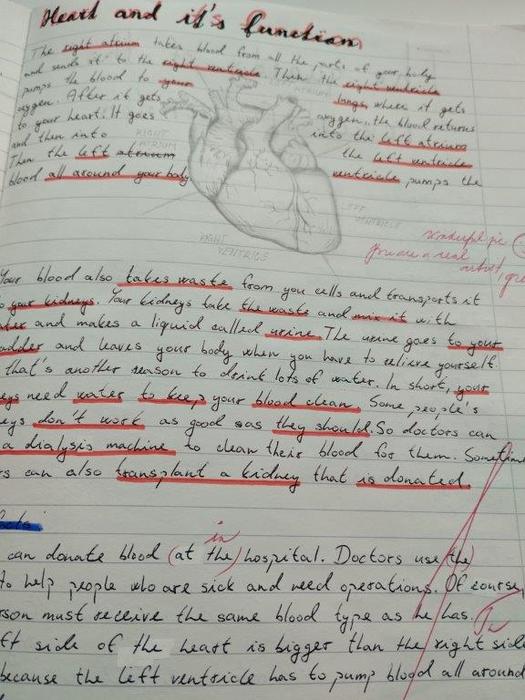 Heart and it's function
The right atrium takes blood from all the parts of your body
and sends it to the right ventricle. Then the right ventricle
pumps the blood to your lungs where it gets
oxygen. After it gets oxygen, the blood returns
to your heart. It goes into the left atrium
and then into the left ventricle
Then the left atrium ventricle pumps the
blood all around your body
ATRIUM
RIGHT
ATRIUM
LEFT
VENTRICLE
RIGHT
VENTRICLE
wonderful pic
You are a real
artist,
Your blood also takes waste from you cells and transports it
your kidneys. Your kidneys take the waste and mix it with
and makes a liquid called urine. The urine goes to your
adder and leaves your body when you have to relieve yourself.
that's another reason to drink lots of water. In short, your
eys need water to keep your blood clean. Some people's
eys don't work as good as they should. So doctors can
a dialysis machine to clean their blood for them. Sometim
rs can also transplant a kidney that is donated.
facts
in
can donate blood (at the) hospital. Doctors use the
to help people who are sick and need operations. Of course,
rson must receive the same blood type as he has.
ft side of the heart is bigger than the right side
because the left ventricle has to pump blood all around